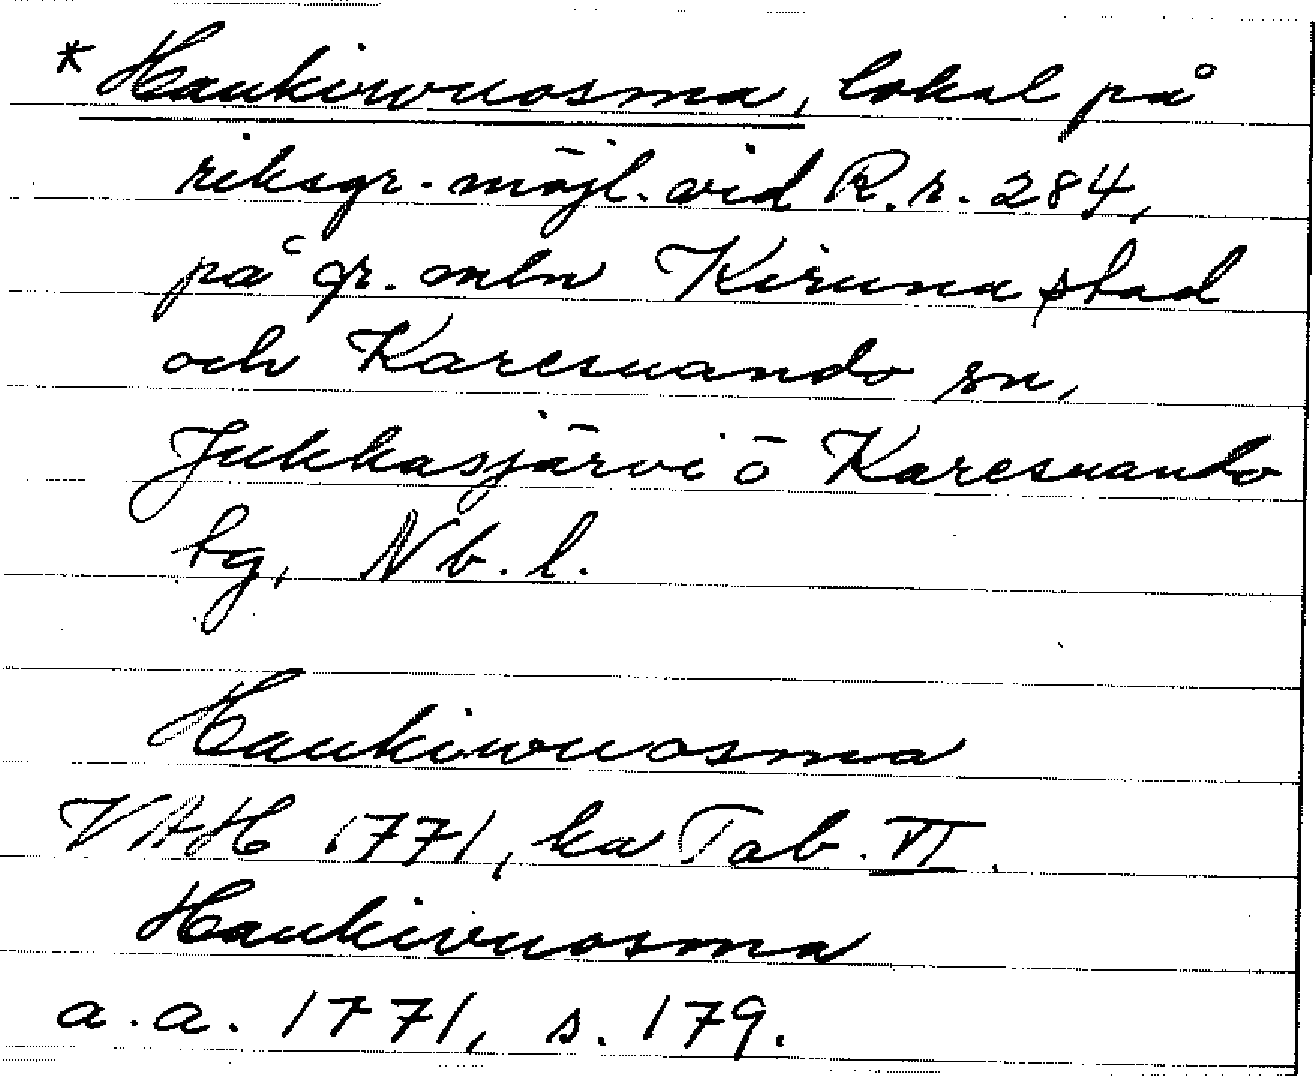 * Haukivuosma, lokal på
riksgr. möjl. vid R.r. 284,
på gr. mln Kiruna stad
och Karesuando sn,
Jukkasjärvi o Karesuando
tg, Nb. l.
Haukiwuosma
VAH 1771, ka Tab. VI.
Haukivuosma
a.a. 1771, s. 179.